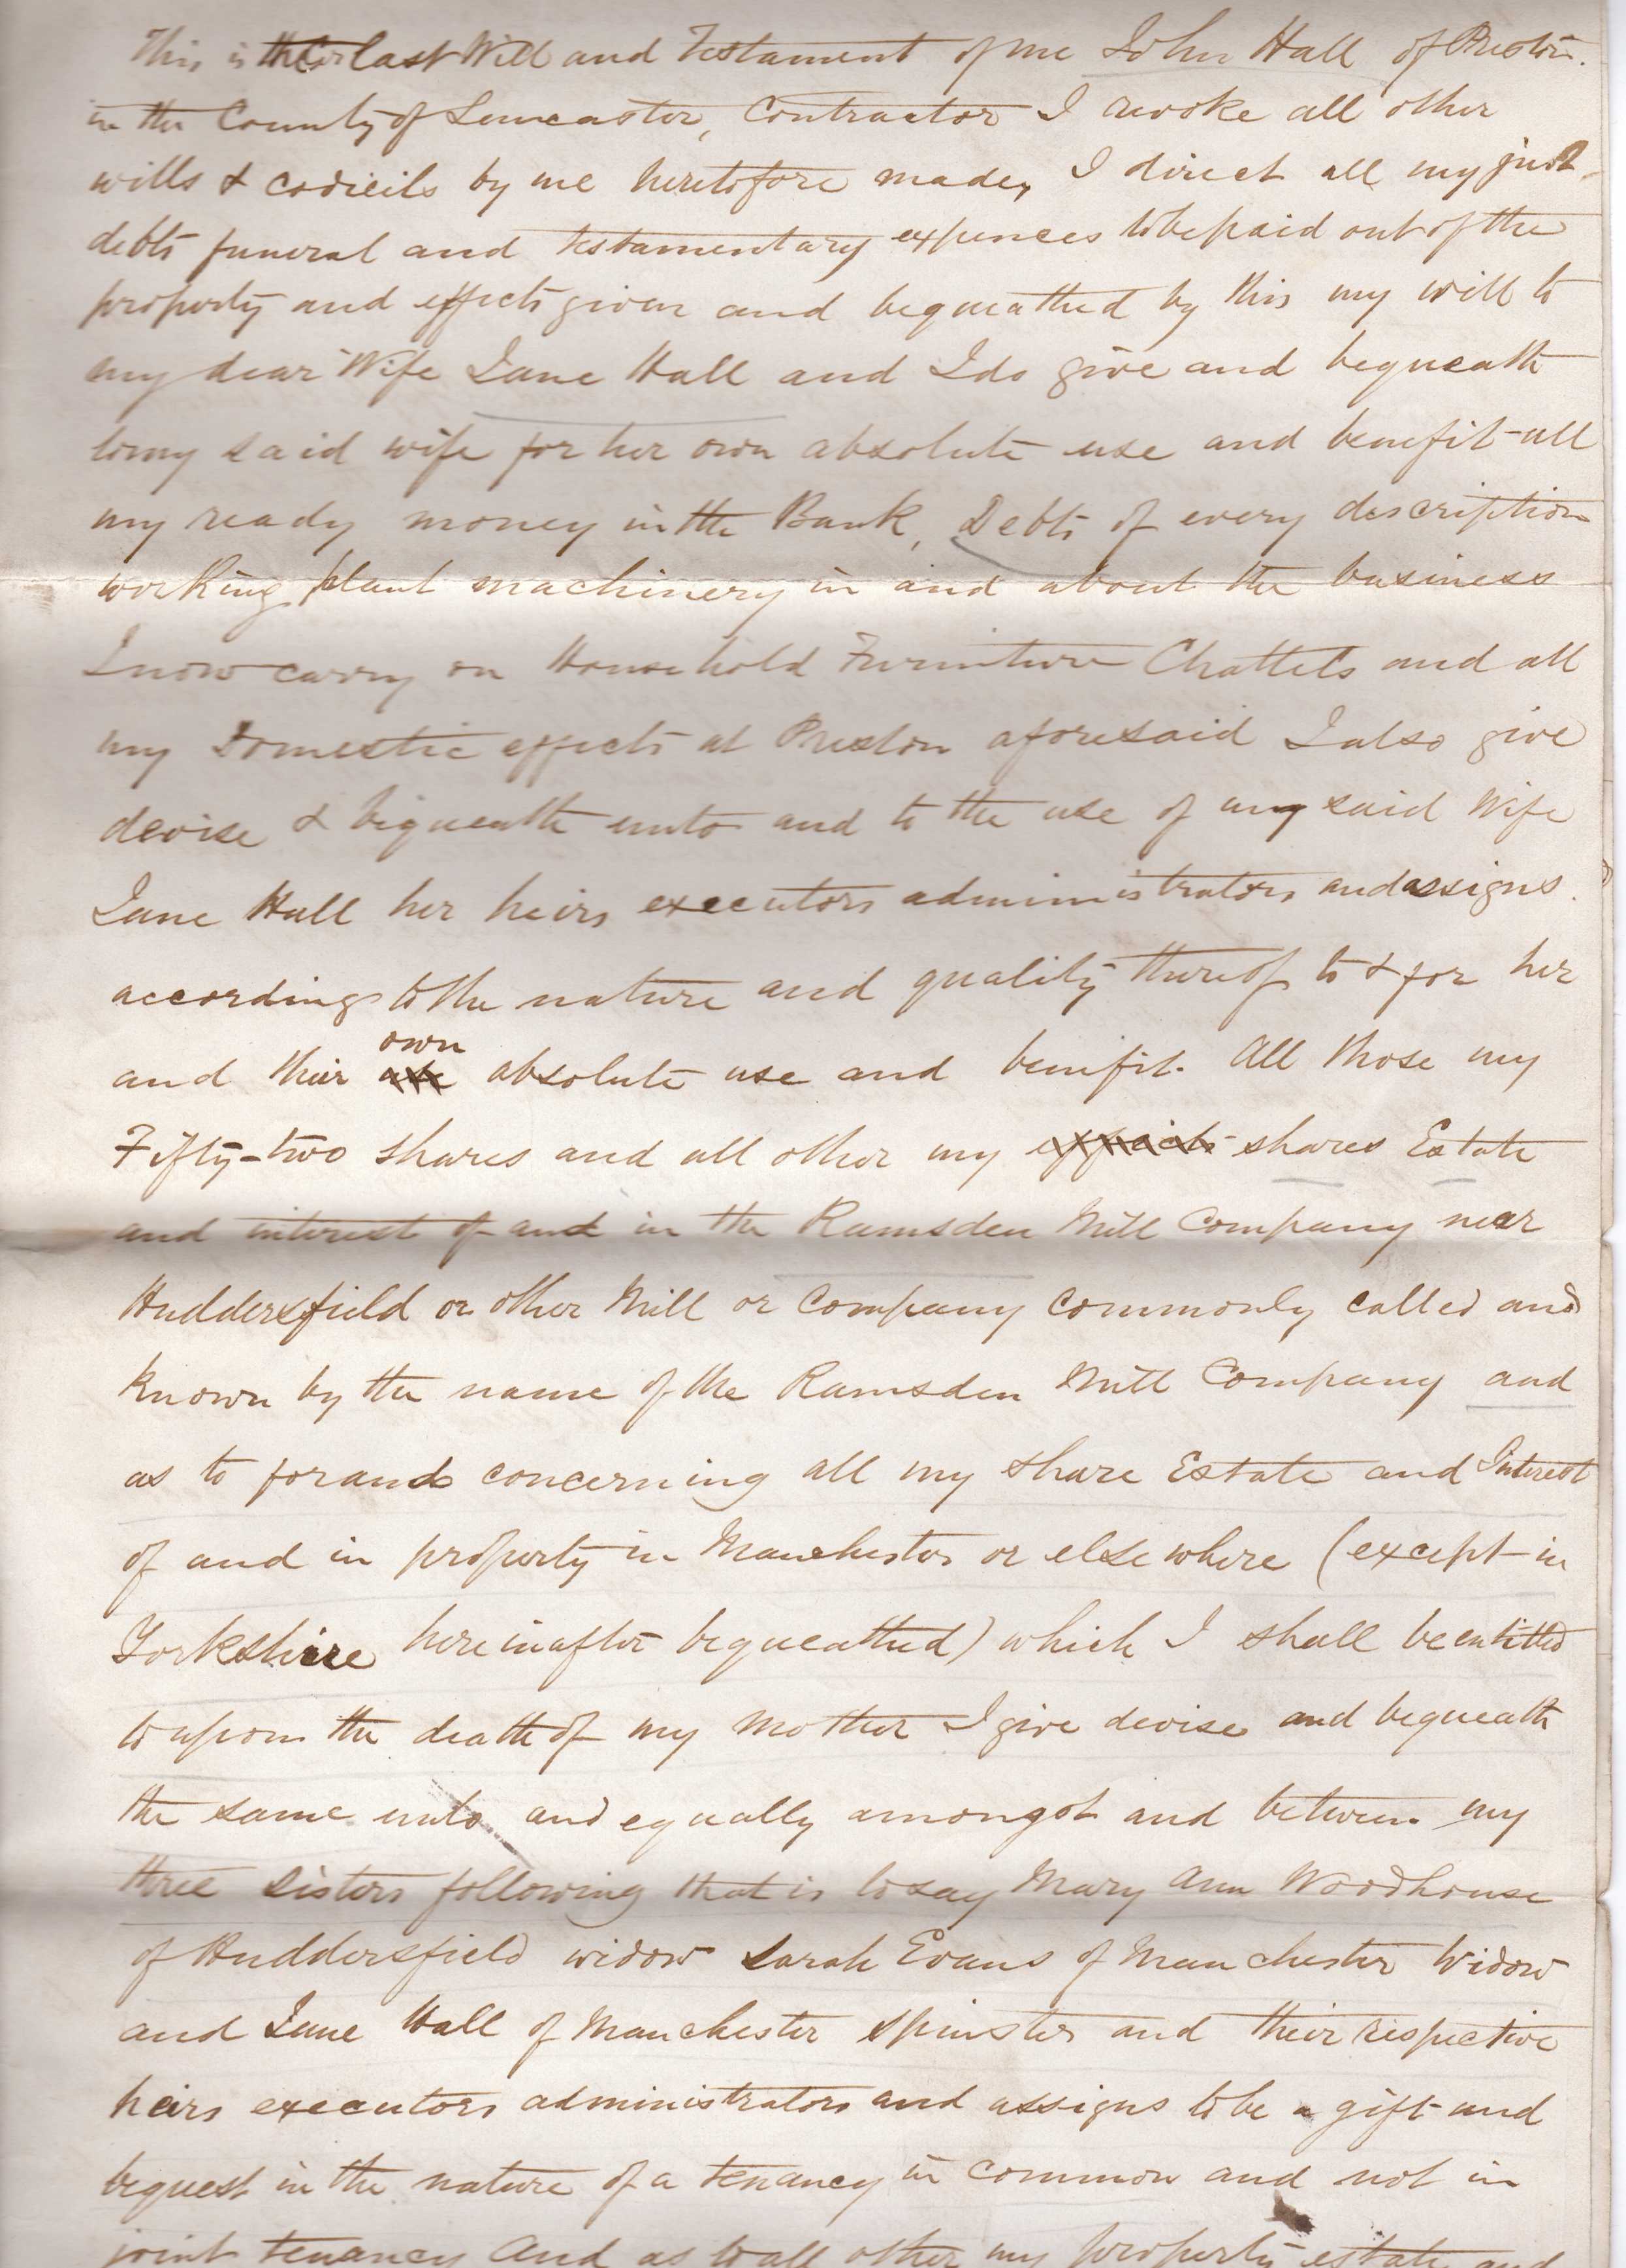 This is the last Will and Testament of me John Hall of Preston
in the County of Lancaster, Contractor I revoke all other
wills & codicils by me heretofore made, I direct all my just
debts funeral and testamentary expences to be paid out of the
property and effects given and bequeathed by this my will to
my dear Wife Jane Hall and I do give and bequeath
to my said wife for her own absolute use and benefit all
my ready money in the Bank, Debts of every description
working plant machinery in and about the business
I now carry on Household Furniture Chattels and all
my Domestic effects at Preston aforesaid I also give
devise & bequeath unto and to the use of my said Wife
Jane Hall her heirs executors administrators and assigns.
according to the nature and quality thereof to & for her
own
and their absolute use and benifit. All those my
Fifty-two shares and all other my effects shares Estate
and interest of and in the Ramsden Mill Company near
Huddersfield or other Mill or Company commonly called and
known by the name of the Ramsden Mill Company and
as to for and concerning all my share Estate and Interest
of and in property in Manchester or elsewhere (except in
Yorkshire hereinafter bequeathed) which I shall be entitled
to upon the death of my Mother I give devise and bequeath
the same unto and equally amongst and between my
three Sisters following that is to say Mary Ann Woodhouse
of Huddersfield widow Sarah Evans of Manchester Widow
and Jane Hall of Manchester Spinster and their respective
heirs executors administrators and assigns to be a gift and
bequest in the nature of a tenancy in common and not in
joint tenancy And as to all other my property estate and